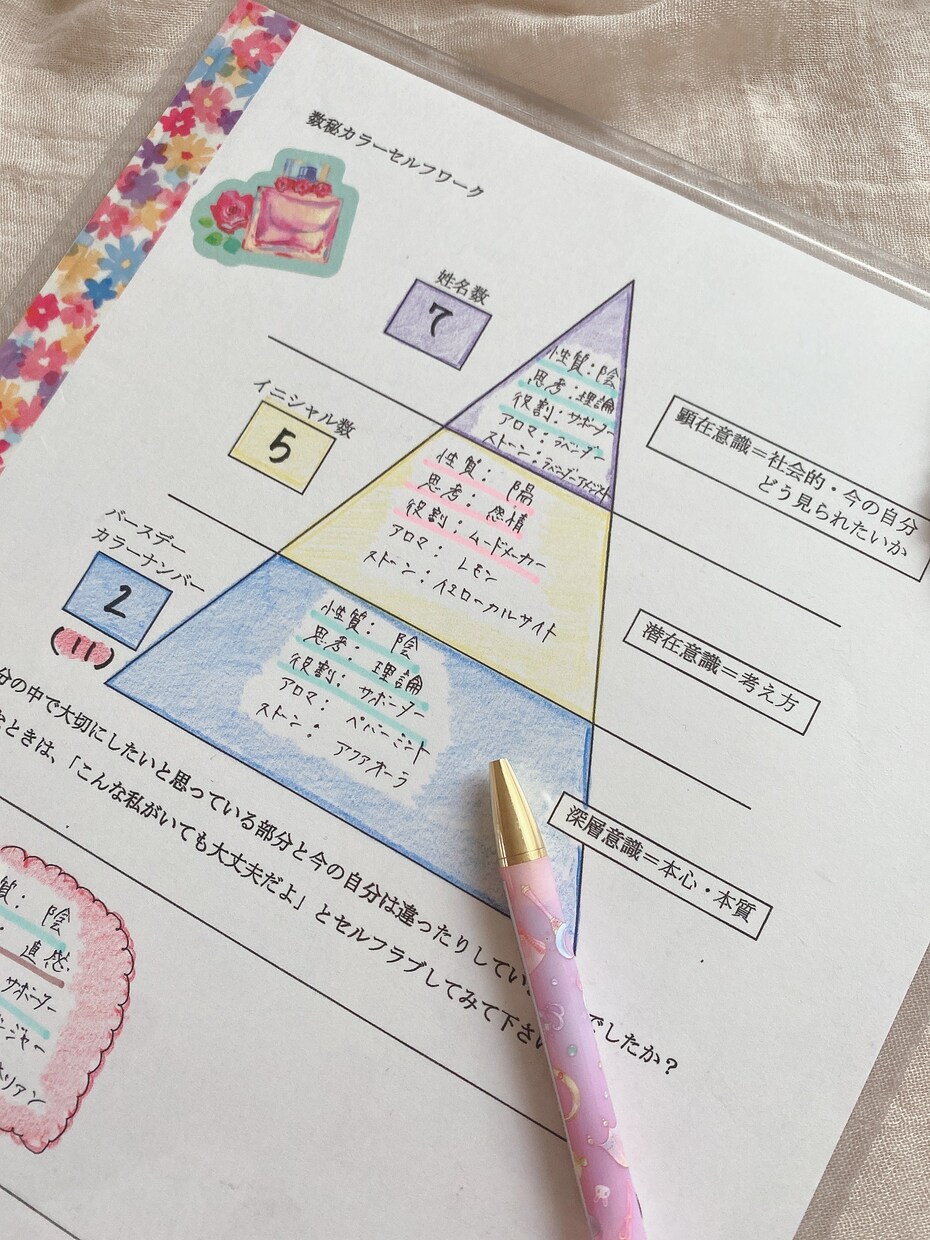 数秘カラーセルフワーク
姓名数
7
性質：陰
思考：理論
役割：サポーター
アロマ：ラベンダー
ストーン：ラベンダーアメジスト
顕在意識＝社会的・今の自分
どう見られたいか
イニシャル数
5
性質：陽
思考：感情
役割：ムードメーカー
アロマ：レモン
ストーン：イエローカルサイト
潜在意識＝考え方
バースデー
カラーナンバー
2
(11)
性質：陰
思考：理論
役割：サポーター
アロマ：ペパーミント
ストーン：アクアオーラ
深層意識＝本心・本質
分の中で大切にしたいと思っている部分と今の自分は違ったりしてい でしたか？
ときは、「こんな私がいても大丈夫だよ」とセルフラブしてみて下さい
質：陰
：直感
サポーター
ンジャー
リアン